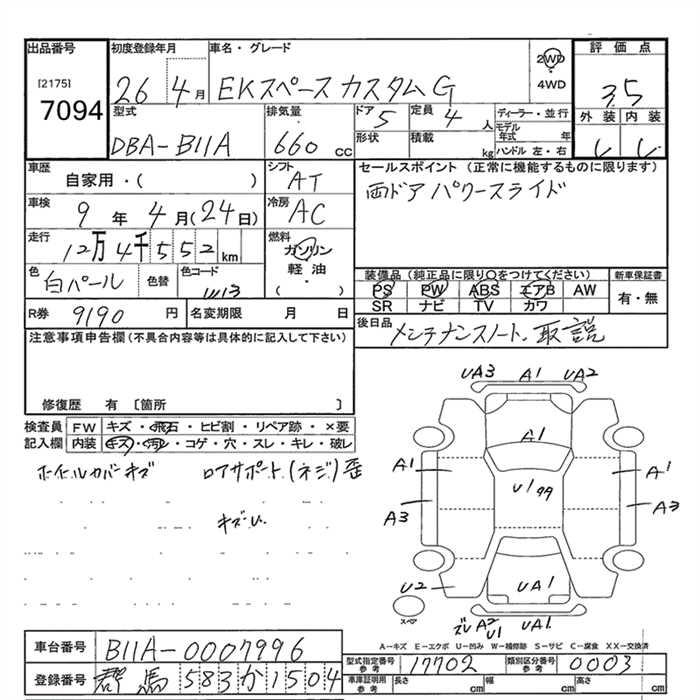 出品番号
[2175]
7094
初度登録年月
26年4月
車名・グレード
EKスペース カスタムG
2WD
4WD
評価点
3.5
外装 内装
型式
DBA-B11A
排気量
660 cc
ドア 5
定員 4 人
形状
積載 kg
ディーラー・並行
モデル年式 年
ハンドル 左・右
車歴
自家用・( )
シフト
AT
セールスポイント (正常に機能するものに限ります)
両ドア パワースライド
車検
9年 4月(24日)
冷房
AC
走行
12万4千552km
燃料
ガソリン
軽油
( ・ )
色
白パール
色替
色コード
W13
装備品(純正品に限り○をつけてください)
PS PW ABS エアB AW
SR ナビ TV カワ
新車保証書
有・無
R券 9190 円
名変期限 月 日
後日品
メンテナンスノート、取説
注意事項申告欄(不具合内容等は具体的に記入して下さい)
修復歴 有 〔箇所 〕
検査員記入欄
FW キズ・飛石・ヒビ割・リペア跡・×要
内装 キズ・汚れ・コゲ・穴・スレ・キレ・破レ
ホイールカバーキズ
ロアサポート(ネジ)歪
キズU.
UA3 A1 UA2
A1
A1 A1
U1
A3 A3
U2 UA1
スペア
ズレ A2 U1
A-キズ E-エクボ U-凹み W-補修跡 S-サビ C-腐食 XX-交換済
車台番号 B11A-0007996
登録番号 群馬 583 か 1504
型式指定番号 参考 17702
類別区分番号 参考 0003
車庫証明用 参考
長さ cm 幅 cm 高さ cm